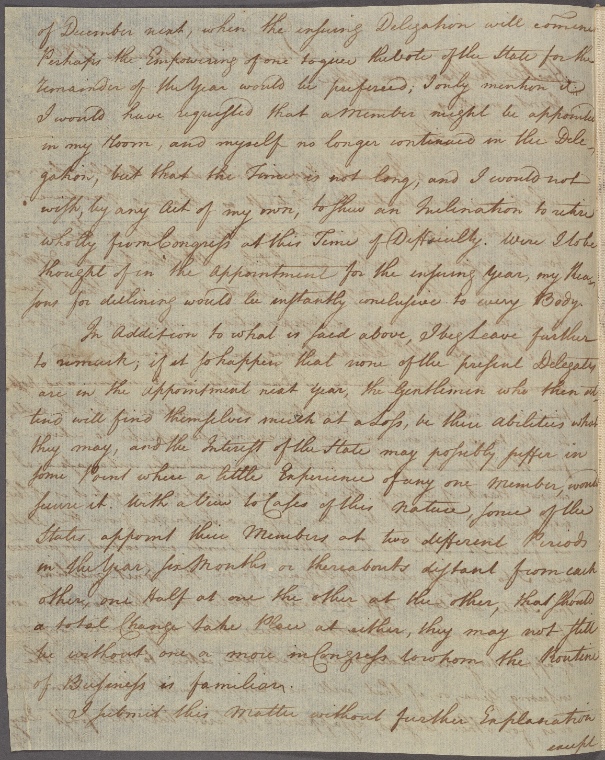 of December next, when the ensuing Delegation will comence
Perhaps the Empowering of one to give the Vote of the State for the
remainder of the Year would be prefered; I only mention it.
I would have requested that a Member might be appointed
in my Room, and myself no longer continued in the Dele-
gation, but that the Time is not long, and I would not
wish, by any Act of my own, to shew an Inclination to retire
wholly from Congress at this Time of Difficulty. Were I to be
thought of in the Appointment for the ensuing Year, my Rea-
sons for declining would be instantly conclusive to every Body.
In Addition to what is said above, I beg Leave further
to remark; if it so happen that none of the present Delegates
are in the Appointment next Year, the Gentlemen who then at
tend will find themselves much at a Loss, be their Abilities what
they may, and the Interest of the State may possibly suffer in
some Point where a little Experience of any one Member, would
secure it. With a View to Cases of this Nature, some of the
States appoint their Members at two different Periods
in the Year, six Months or thereabouts distant from each
other, one Half at one the other at the other, that should
a total Change take Place at either, they may not still
be without one a more in Congress to whom the Routine
of Business is familiar.
I submit this Matter without further Explanation
except